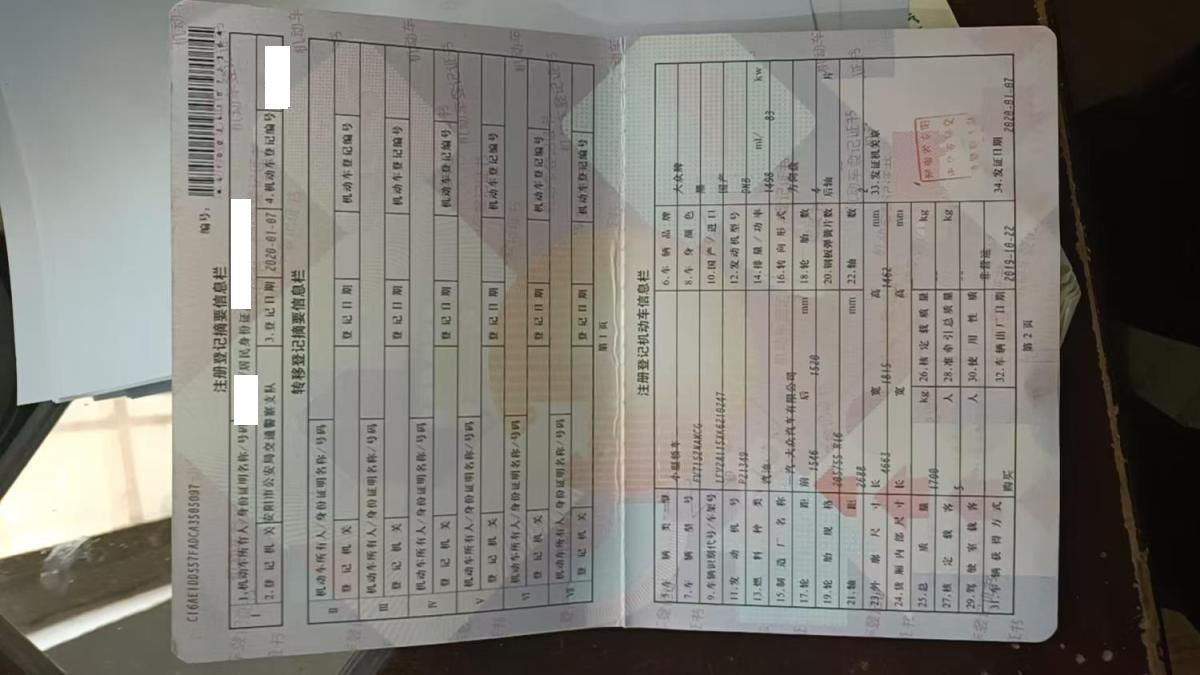 编号:
注册登记摘要信息栏
I 1.机动车所有人/身份证明名称/号码 居民身份证
2.登记机关 安阳市公安局交通警察支队 3.登记日期 2020-01-07 4.机动车登记编号
转移登记摘要信息栏
II 机动车所有人/身份证明名称/号码
登记机关 登记日期 机动车登记编号
III 机动车所有人/身份证明名称/号码
登记机关 登记日期 机动车登记编号
IV 机动车所有人/身份证明名称/号码
登记机关 登记日期 机动车登记编号
V 机动车所有人/身份证明名称/号码
登记机关 登记日期 机动车登记编号
VI 机动车所有人/身份证明名称/号码
登记机关 登记日期 机动车登记编号
VII 机动车所有人/身份证明名称/号码
登记机关 登记日期 机动车登记编号
第1页
C16AE1DD557FADCA3505097
注册登记机动车信息栏
5.车辆类型 小型轿车 6.车辆品牌 大众牌
7.车辆型号 FV7152HAMCG 8.车身颜色 黑
9.车辆识别代号/车架号 10.国产/进口 国产
11.发动机号 P21349 12.发动机型号 DMB
13.燃料种类 汽油 14.排量/功率 1498 ml/ 83 kw
15.制造厂名称 一汽-大众汽车有限公司 16.转向形式 方向盘
17.轮距 前 1546 后 1520 mm 18.轮胎数 4
19.轮胎规格 205/55 R16 20.钢板弹簧片数 后轴 片
21.轴距 2688 mm 22.轴数 2
23.外廓尺寸 长 4663 宽 1815 高 1462 mm 33.发证机关章
24.货厢内部尺寸 长 宽 高 mm
25.总质量 1780 kg 26.核定载质量 kg
27.核定载客 5 人 28.准牵引总质量 kg
29.驾驶室载客 人 30.使用性质 非营运
31.车辆获得方式 购买 32.车辆出厂日期 2019-10-22 34.发证日期 2020-01-07
第2页